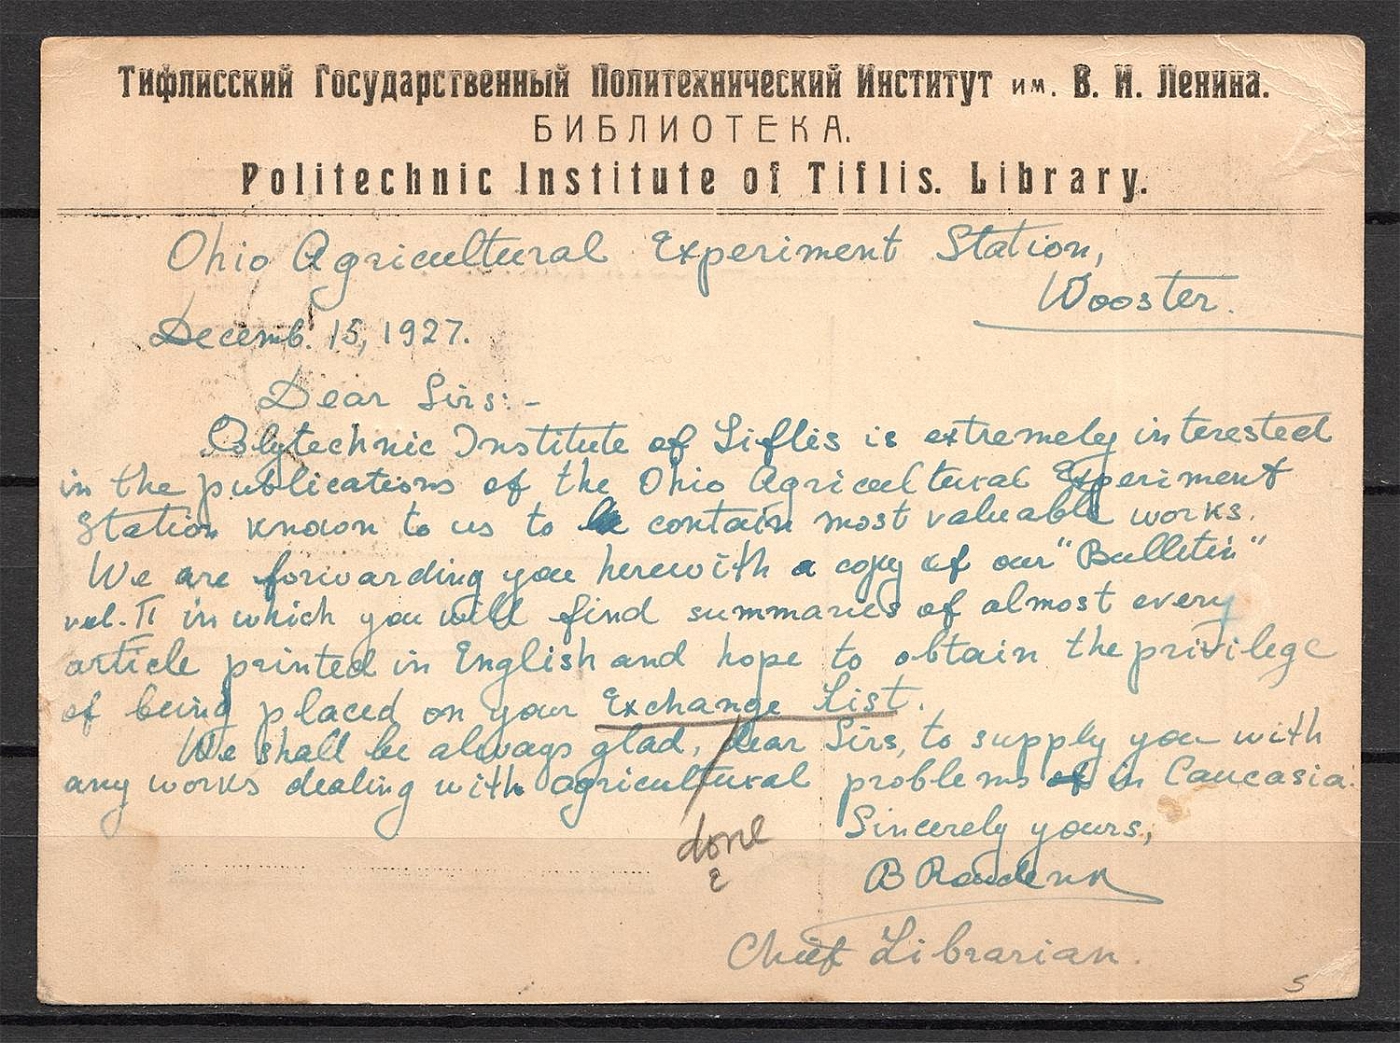 Тифлисский Государственный Политехнический Институт им. В. И. Ленина.
БИБЛИОТЕКА.
Politechnic Institute of Tiflis. Library.
Ohio Agricultural Experiment Station,
Wooster.
Decemb. 15, 1927.
Dear Sirs:-
Polytechnic Institute of Tiflis is extremely interested
in the publications of the Ohio Agricultural Experiment
Station known to us to contain most valuable works.
We are forwarding you herewith a copy of our "Bulletin"
vol. II in which you will find summaries of almost every
article printed in English and hope to obtain the privilege
of being placed on your Exchange List.
We shall be always glad, dear Sirs, to supply you with
any works dealing with agricultural problems in Caucasia.
done
Sincerely yours,
B
Chief Librarian.
S